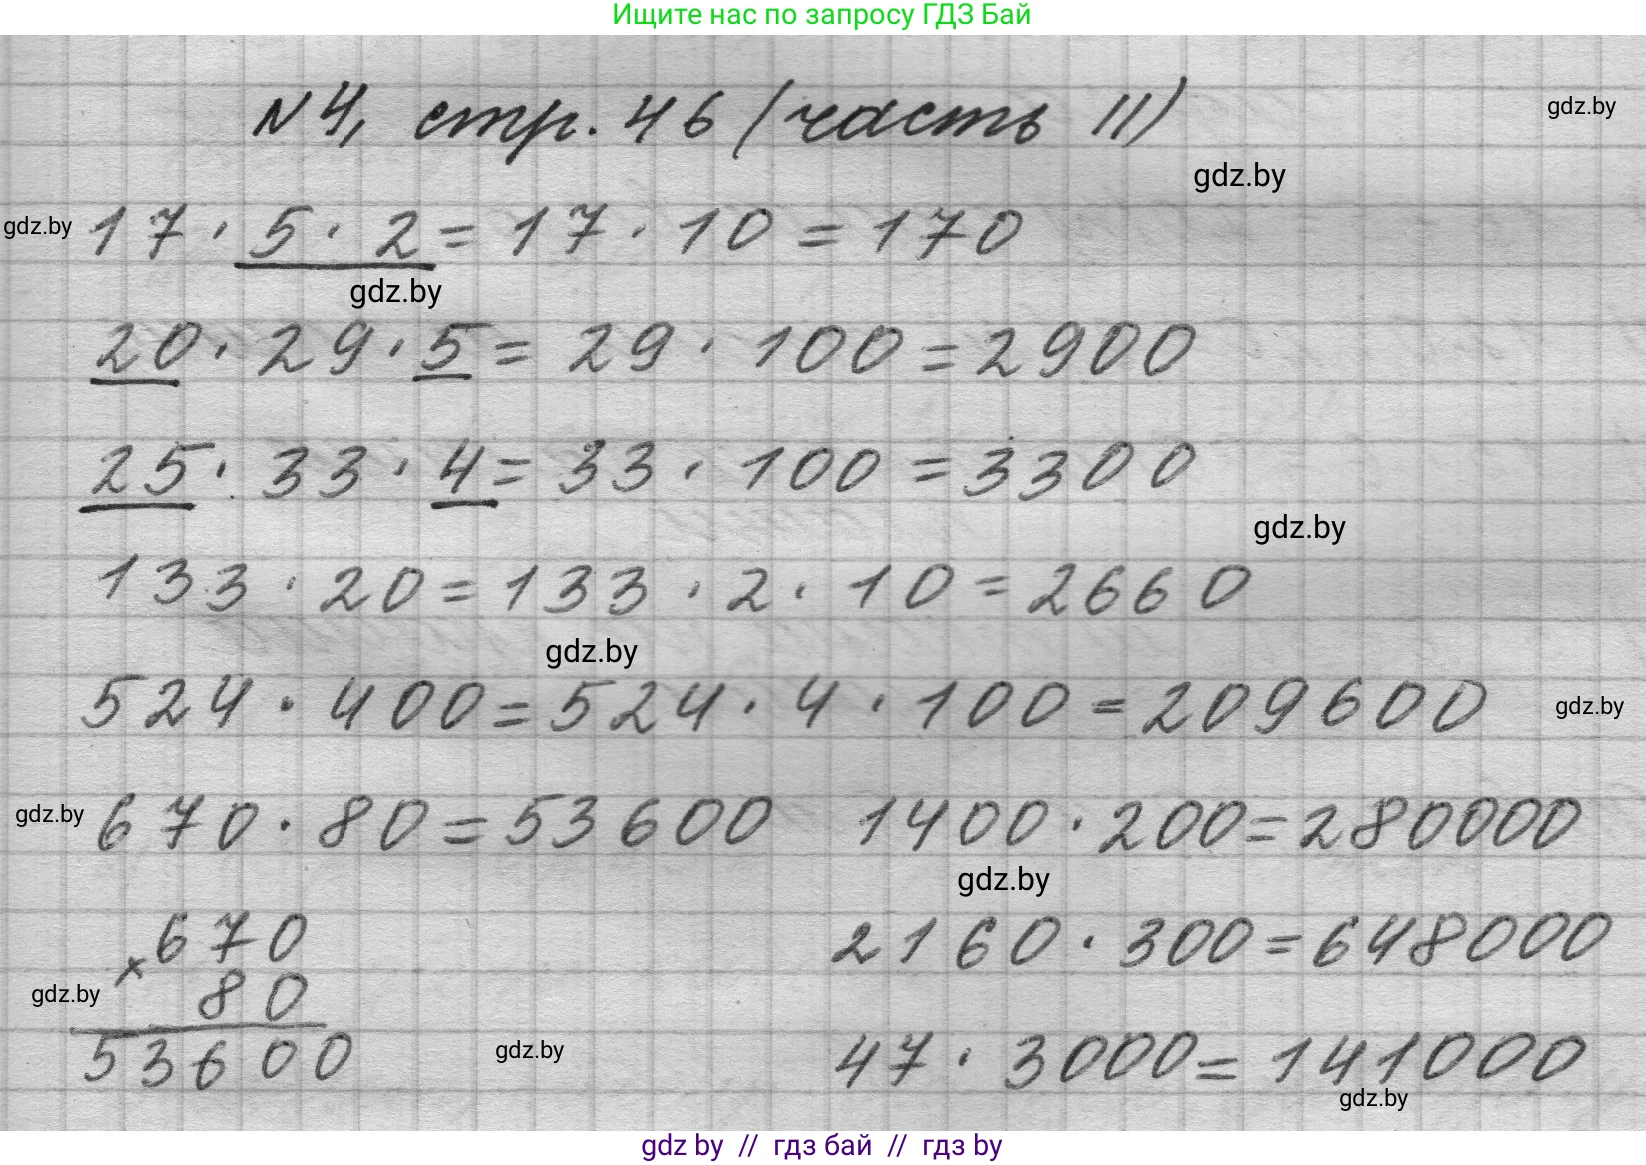 Ищите нас по запросу ГДЗ Бай
N4, стр. 46 (часть II)
gdz.by
gdz.by
gdz.by
17 · 5 · 2 = 17 · 10 = 170
gdz.by
20 · 29 · 5 = 29 · 100 = 2900
25 · 33 · 4 = 33 · 100 = 3300
gdz.by
133 · 20 = 133 · 2 · 10 = 2660
gdz.by
524 · 400 = 524 · 4 · 100 = 209600
gdz.by
gdz.by
670 · 80 = 53600
1400 · 200 = 280000
gdz.by
× 670
80
53600
gdz.by
gdz.by
2160 · 300 = 648000
47 · 3000 = 141000
gdz.by
gdz by // гдз бай // гдз by